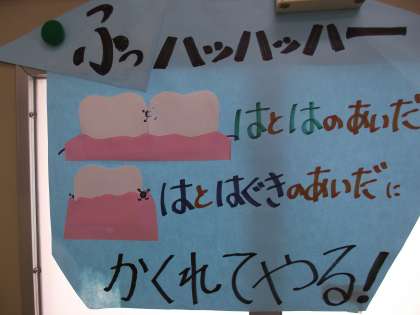 ふっハッハッハー
はとはのあいだ
はとはぐきのあいだに
かくれてやる!